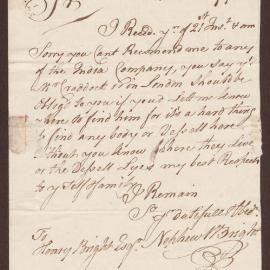 Sr
I Recd. yr. of 21st Inst. & am
Sorry you Cant Recomend me to any
of the India Company, you Say yt.
Mr Craddock is in London Should be
Oblig'd to you if you'd Let me know
where to find him for its a hard thing
to find any body or Vessell here
without you know where they Live
or the Vessell Lyes my best Respects
to yr Self & family
I Remain
Sr yr dutifull & Obedt.
Nephew
To
Henry Bright Esqr.